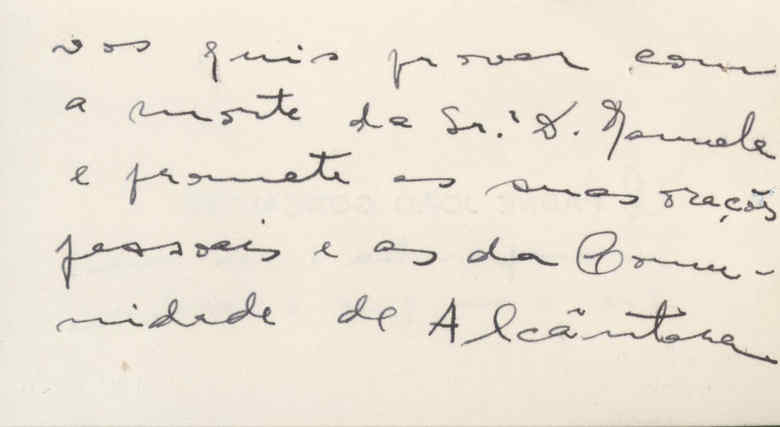 vos quis provar com
a morte da Sr.ª D. Manuela
e promete as suas orações
pessoais e as da Comu-
nidade de Alcântara